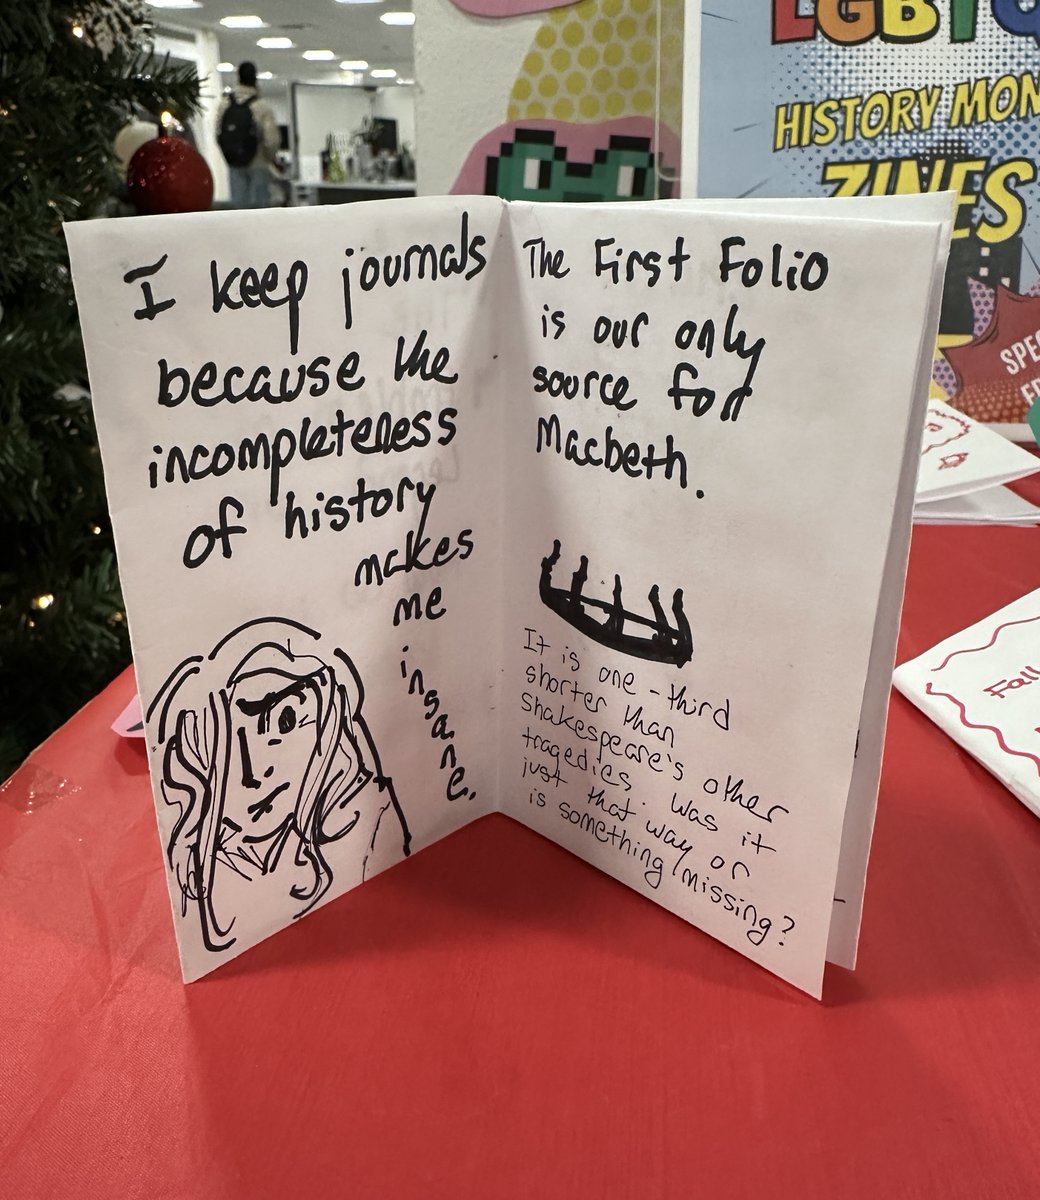 I keep journals
because the
incompleteness
of history
makes
me
insane.
The First Folio
is our only
source for
Macbeth.
It is one-third
shorter than
Shakespeare's other
tragedies. Was it
just that way or
is something missing?
LGBTQ
HISTORY MON
ZINES
SPE
Fall